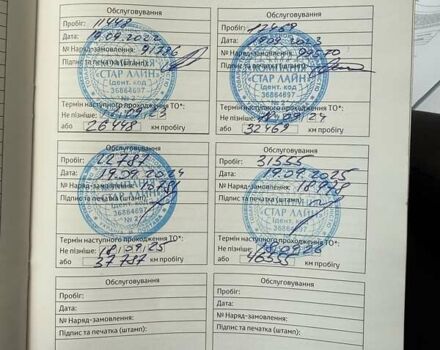 Обслуговування
Пробіг: 11448
Дата: 19.09.2022
№ Наряд-замовлення: 91396
Підпис та печатка (штамп):
«СТАР ЛАЙН»
Ідент. код
36864697
№ 2
Термін наступного проходження ТО*:
Не пізніше: 18.09.23
або 26448 км пробігу
Обслуговування
Пробіг: 17469
Дата: 19.09.2023
№ Наряд-замовлення: 99570
Підпис та печатка (штамп):
«СТАР ЛАЙН»
Ідент. код
36864697
№ 2
Термін наступного проходження ТО*:
Не пізніше: 18.09.24
або 32469 км пробігу
Обслуговування
Пробіг: 22787
Дата: 19.09.2024
№ Наряд-замовлення:
Підпис та печатка (штамп):
Ідент. код
36864697
№ 2
Термін наступного проходження ТО*:
Не пізніше: 18.09.25
або 37787 км пробігу
Обслуговування
Пробіг: 31555
Дата: 19.09.2025
№ Наряд-замовлення: 18978
Підпис та печатка (штамп):
«СТАР ЛАЙН»
Ідент. код
36864697
Термін наступного проходження ТО*:
Не пізніше: 18.09.26
або 46555 км пробігу
Обслуговування
Пробіг:
Дата:
№ Наряд-замовлення:
Підпис та печатка (штамп):
Обслуговування
Пробіг:
Дата:
№ Наряд-замовлення:
Підпис та печатка (штамп):